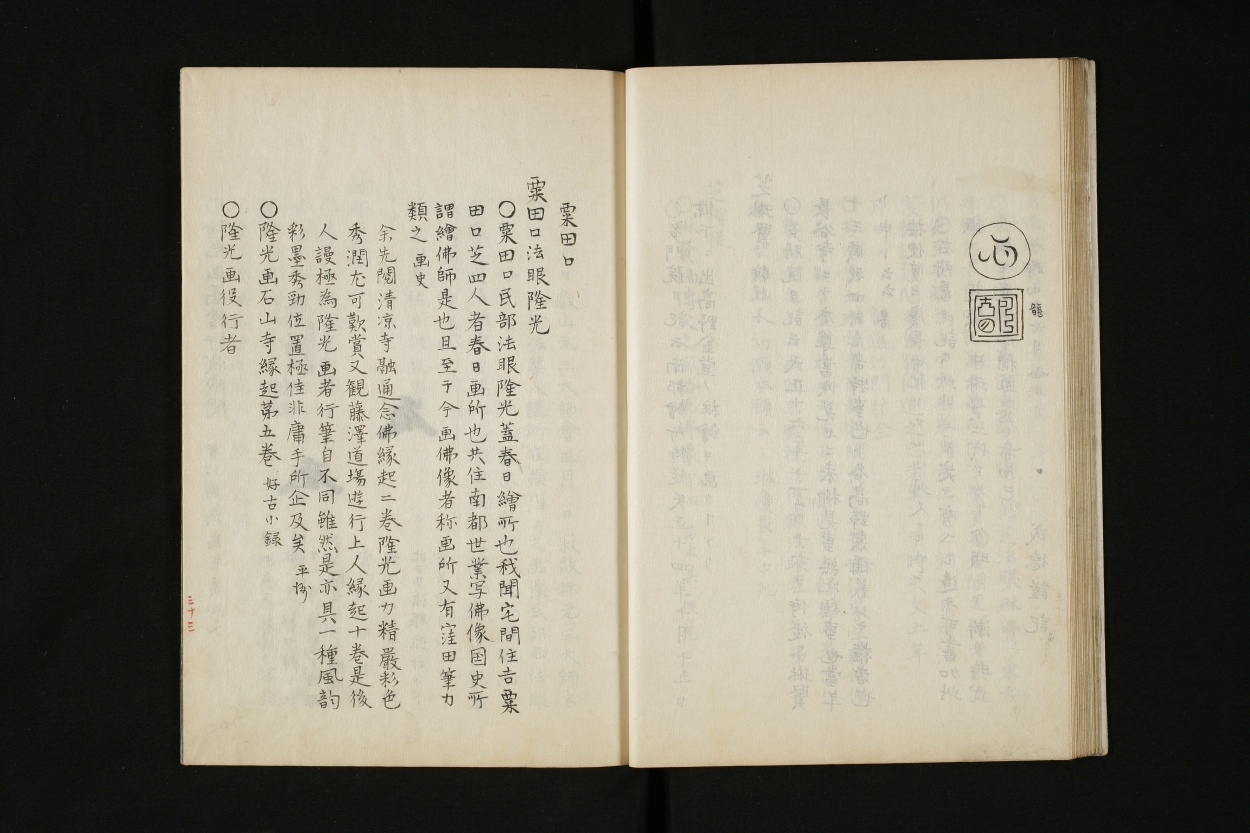 龍
粟田口
粟田口法眼隆光
〇粟田口民部法眼隆光蓋春日繪所也我聞宅間住吉粟
田口芝四人者春日画所也共住南都世業写佛像国史所
謂繪佛師是也且至于今画佛像者称画所又有窪田筆力
類之 画史
余先閲清凉寺融通念佛縁起二巻隆光画力精嚴彩色
秀潤尤可歡賞又観藤澤道場遊行上人縁起十巻是後
人謾極為隆光画者行筆自不同雖然是亦具一種風韵
彩墨秀勁位置極佳非庸手所企及矣
〇隆光画石山寺縁起第五巻 好古小録
〇隆光画役行者
三十三